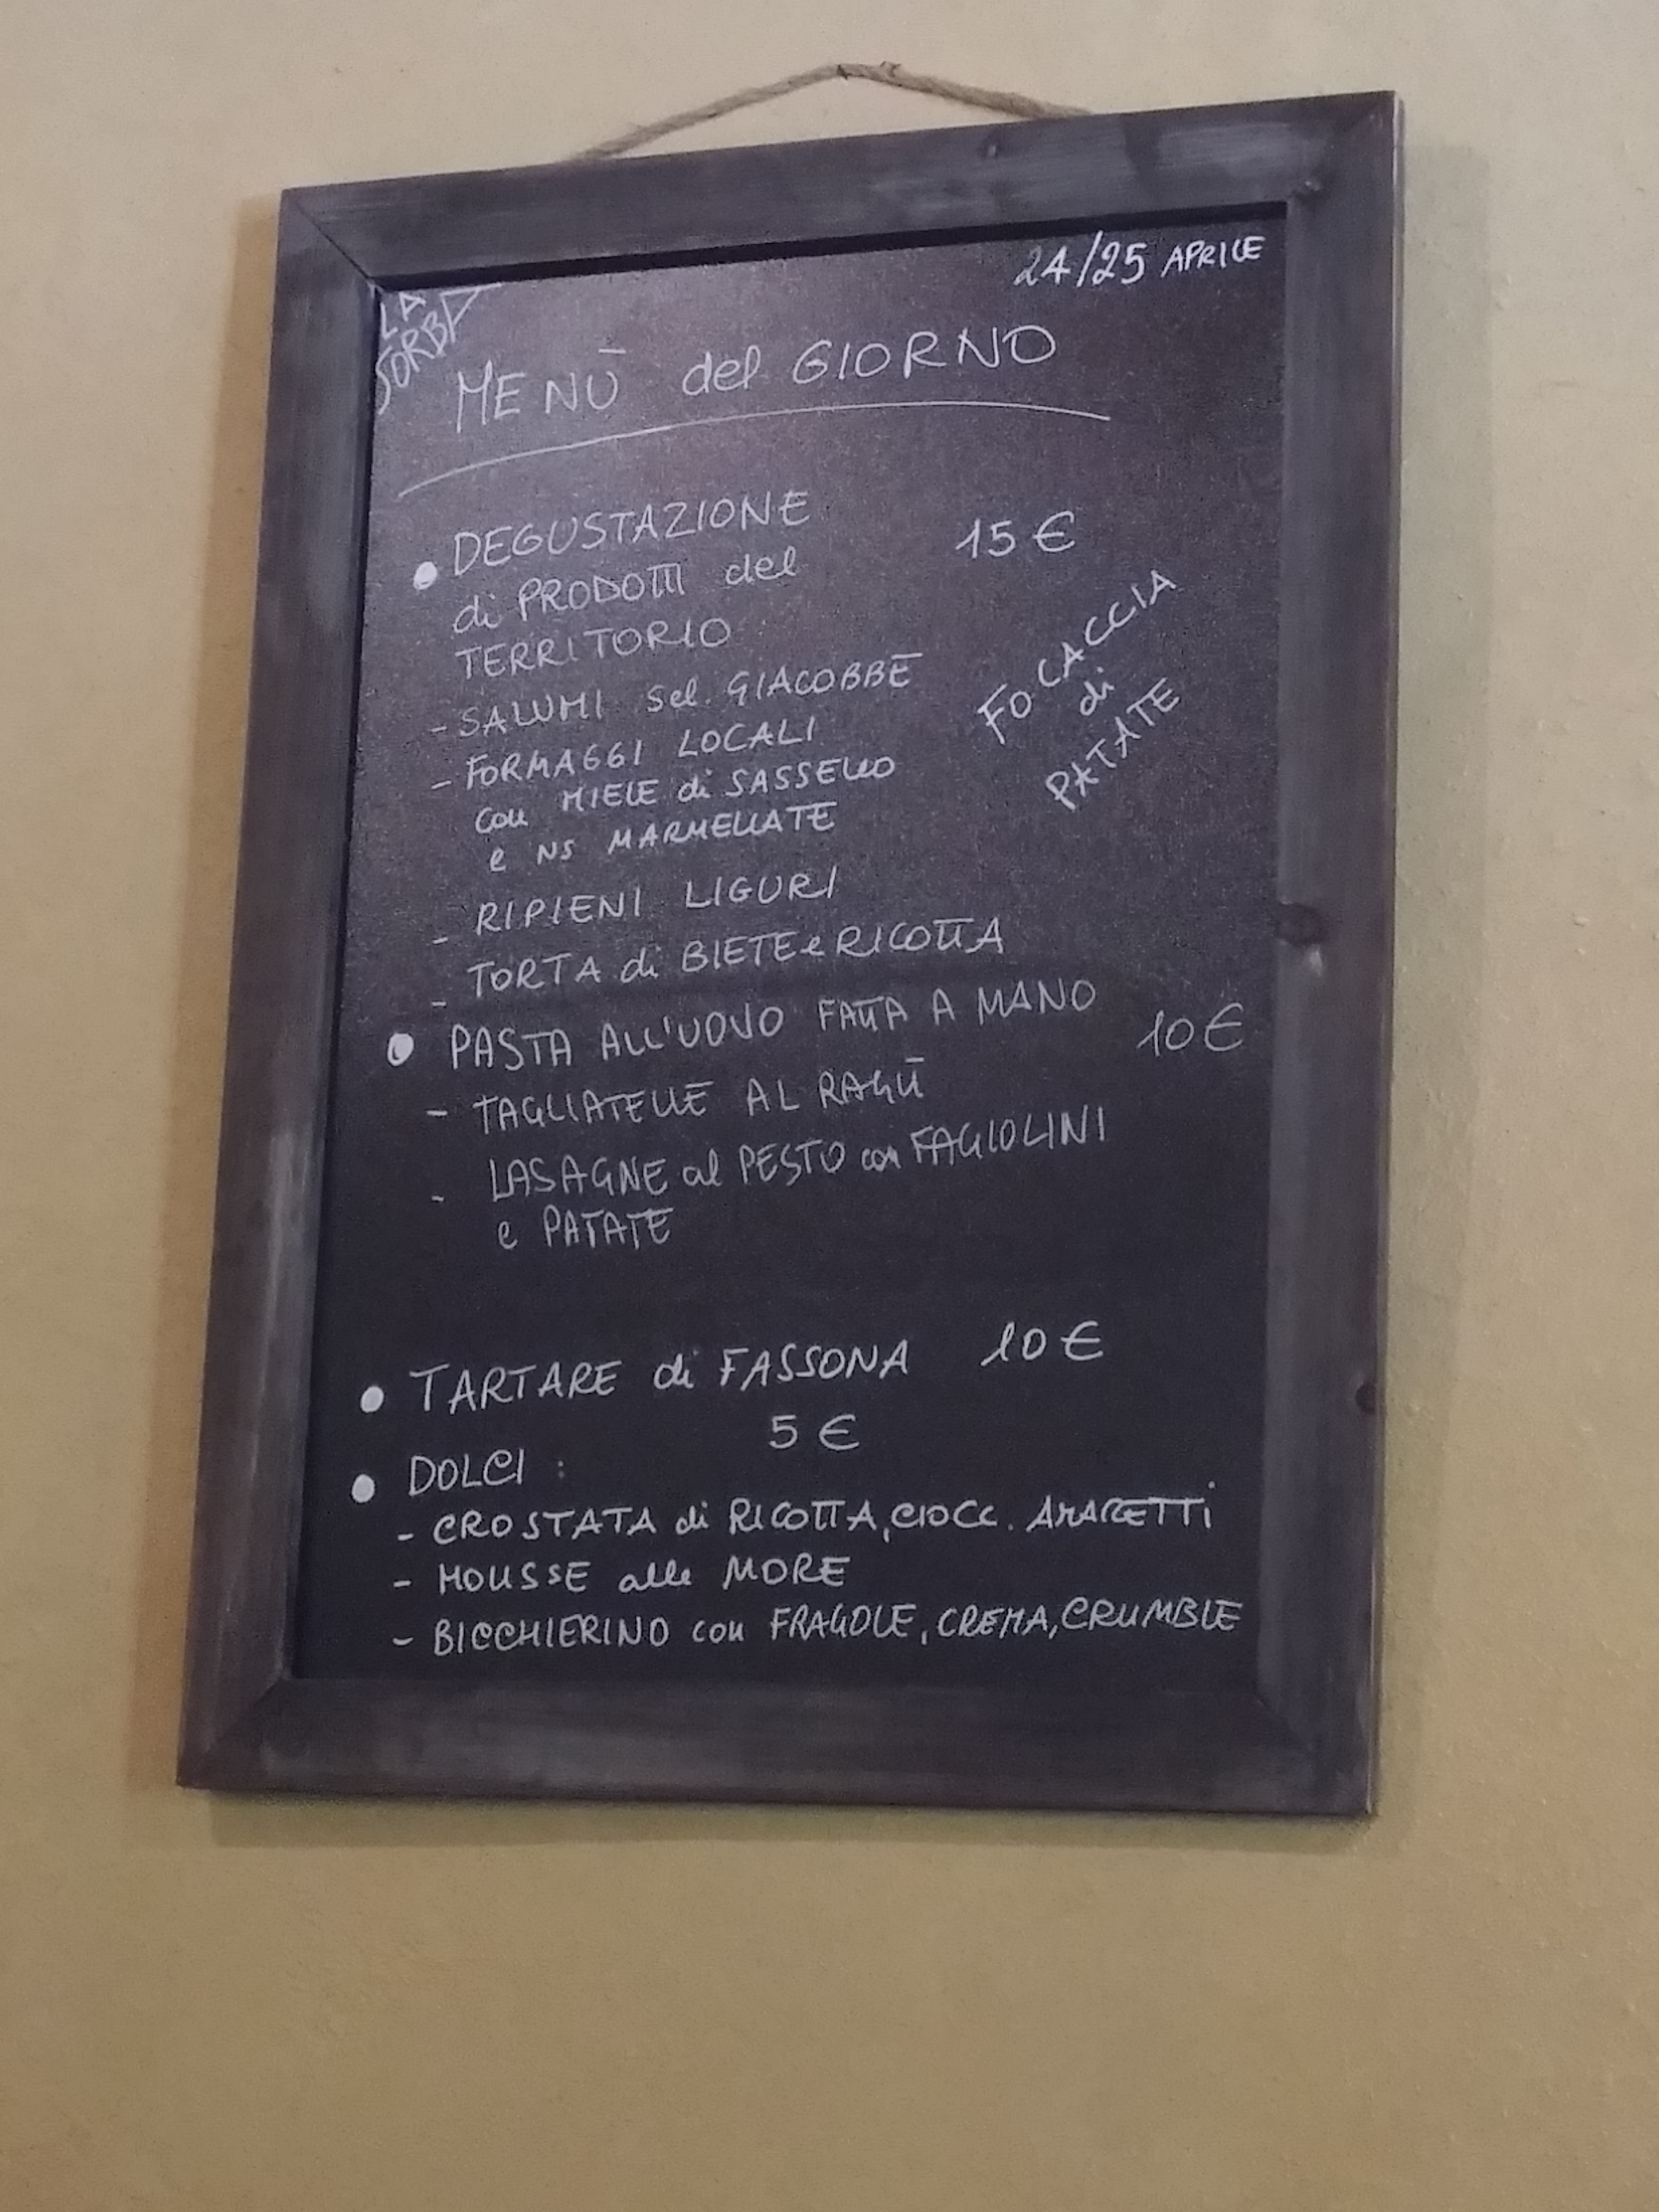 24/25 APRILE
LA
SORBA
MENÙ del GIORNO
DEGUSTAZIONE
di PRODOTTI del
TERRITORIO
15 €
- SALUMI Sel. GIACOBBE
- FORMAGGI LOCALI
con MIELE di SASSELLO
e NS MARMELLATE
FOCACCIA
di
PATATE
- RIPIENI LIGURI
- TORTA di BIETE e RICOTTA
PASTA ALL'UOVO FATTA A MANO 10 €
- TAGLIATELLE AL RAGÙ
- LASAGNE al PESTO con FAGIOLINI
e PATATE
TARTARE di FASSONA 10 €
DOLCI : 5 €
- CROSTATA di RICOTTA, CIOCC. AMARETTI
- MOUSSE alle MORE
- BICCHIERINO con FRAGOLE, CREMA, CRUMBLE